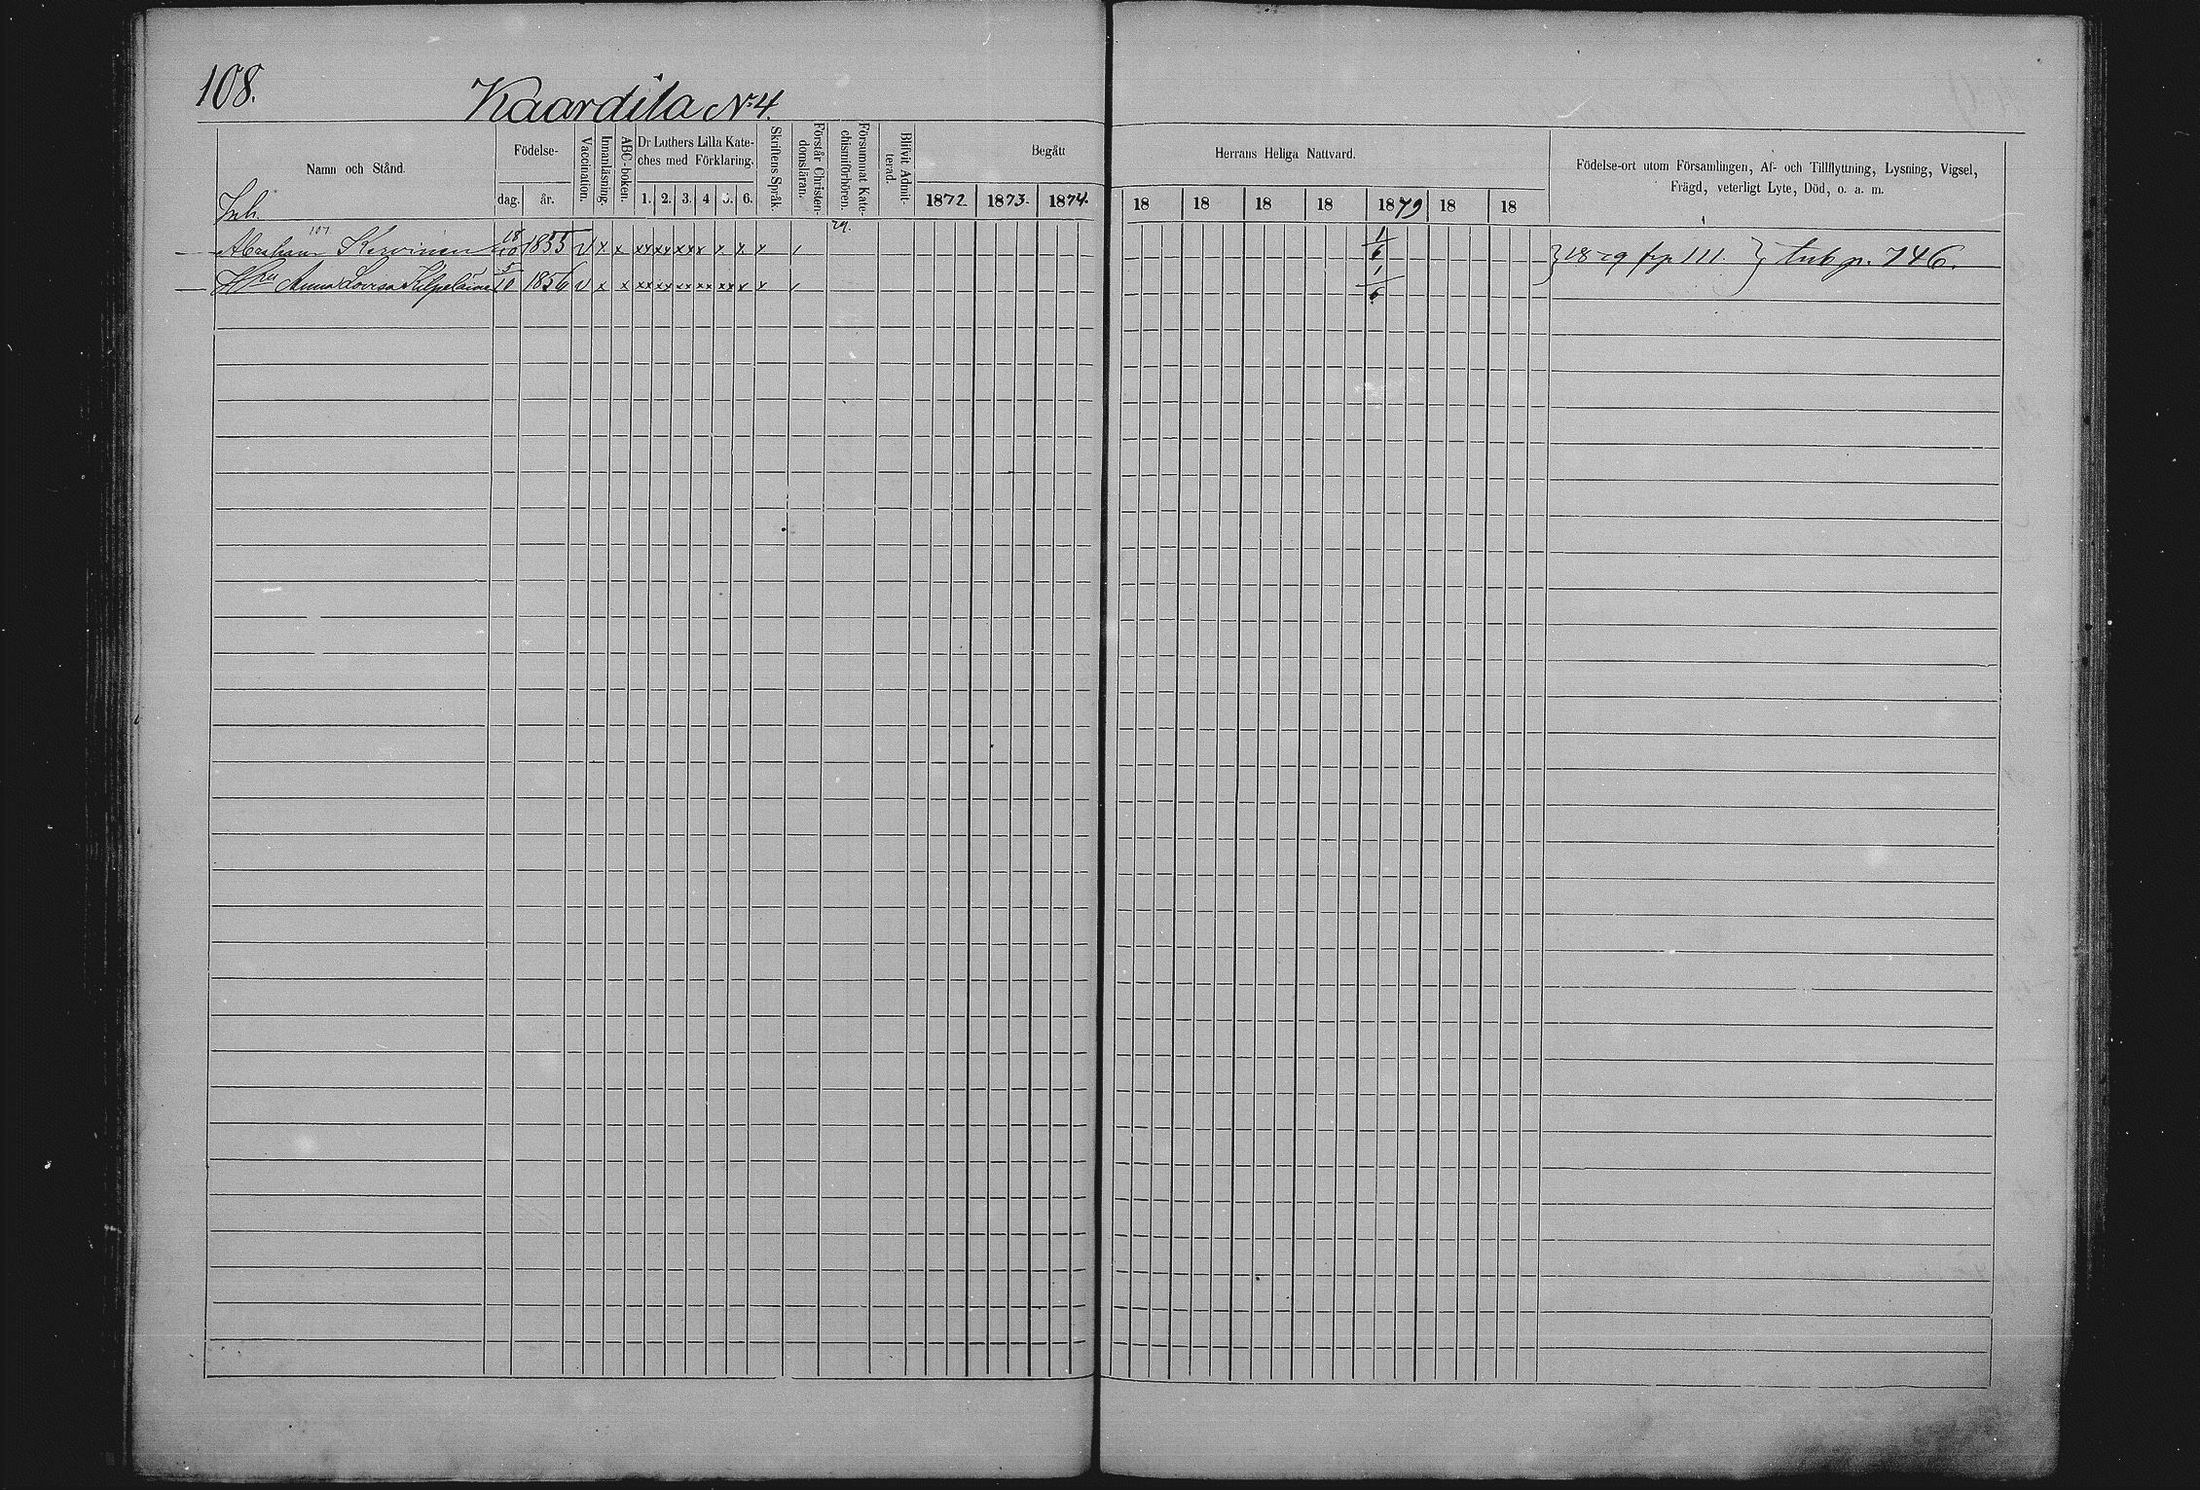 108.
Kaardila N:4.
Namn och Stånd.
Födelse-
dag. år.
Vaccination.
Innanläsning.
ABC-boken.
Dr Luthers Lilla Kate-
ches med Förklaring.
1. 2. 3. 4 5. 6.
Skriftens Språk.
Förstår Christen-
domsläran.
Försummat Kate-
chismiförhören.
Blifvit Admit-
terad.
Begått
1872. 1873. 1874.
Herrans Heliga Nattvard.
18 18 18 18 1879 18 18
Födelse-ort utom Församlingen, Af- och Tillflyttning, Lysning, Vigsel,
Frägd, veterligt Lyte, Död, o. a. m.
Inh.
107
79.
Abraham 18/10 1855 v x x xx xx xx x x x x 1/6 } 18 79 frp 111. } p. 746.
Hu Anna Lovisa Kilpeläinen 5/10 1856 v x x xx xx xx xx xx x x 1/6